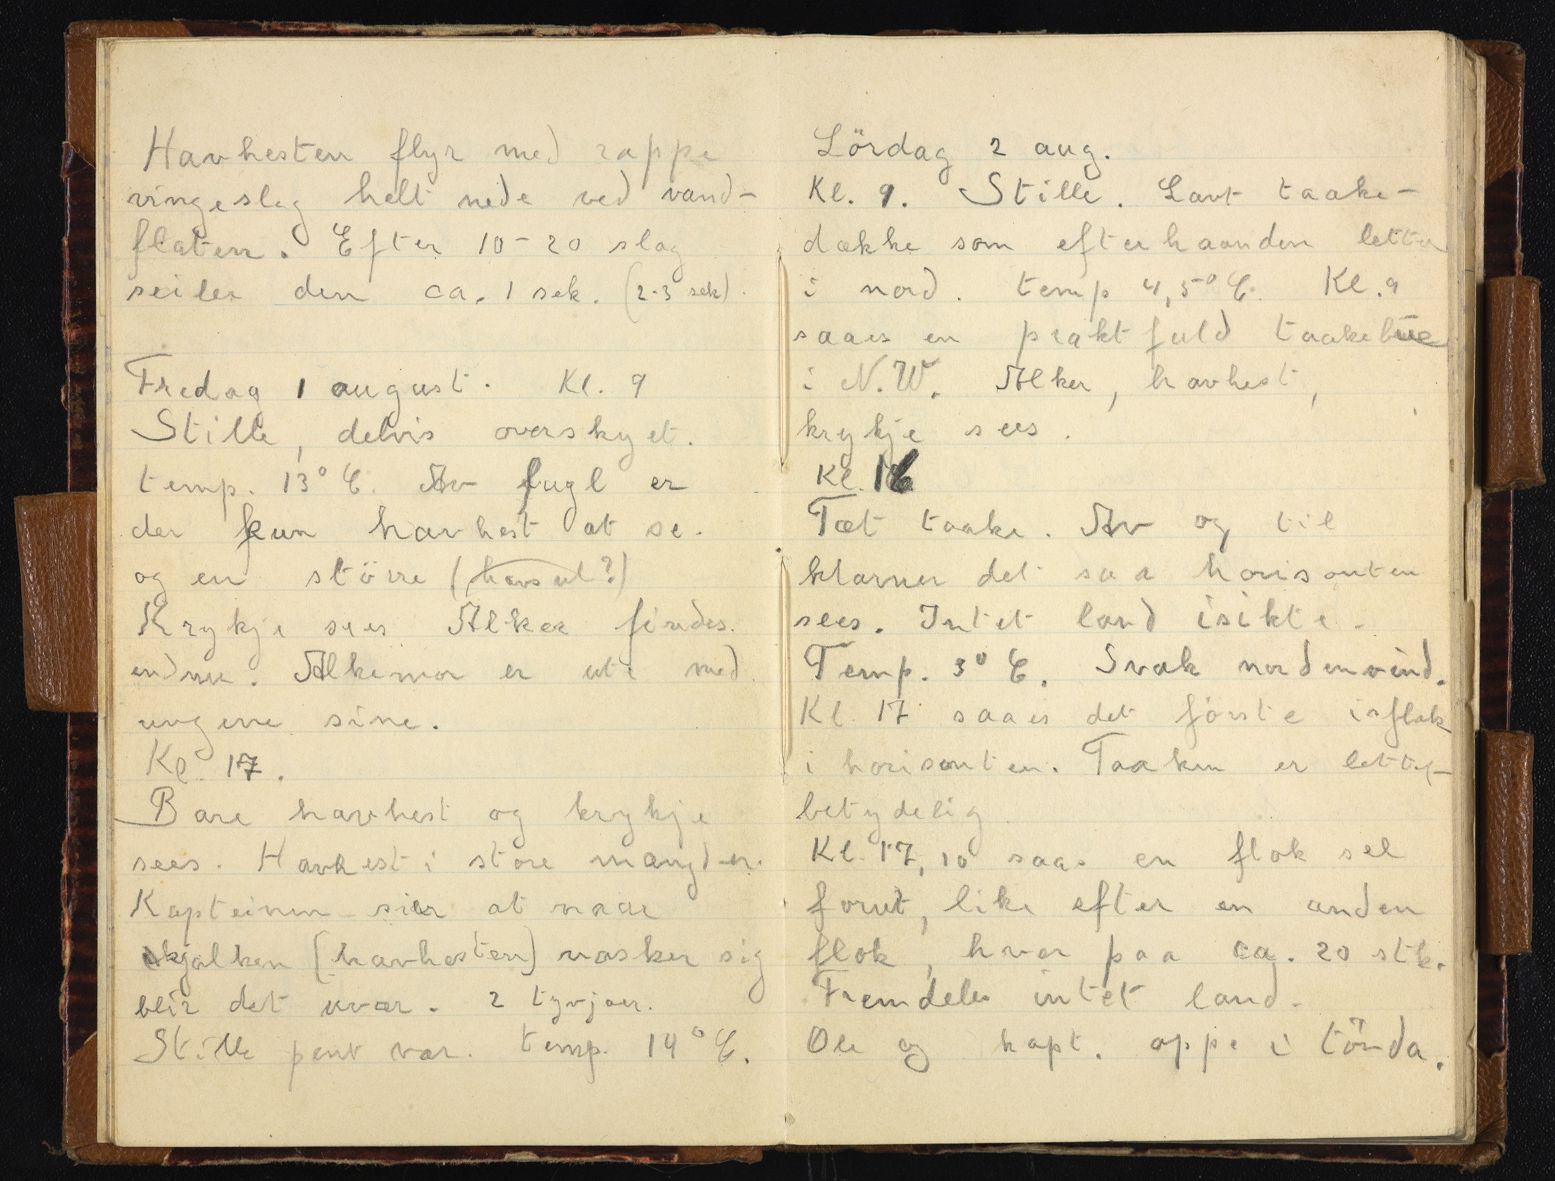 Havhesten flyr med rappe
vingeslag helt nede ved vand-
flaten. Efter 10-20 slag
seiler den ca. 1 sek. (2-3 sek).
Fredag 1 august. Kl. 9
Stille, delvis overskyet.
temp. 13° C. Av fugl er
der kun havhest at se.
og en större (havsul?)
Krykje sees Alker findes
endnu. Alkemor er ute med
ungene sine.
Kl. 17.
Bare havhest og krykje
sees. Havhest i store mængder.
Kapteinen sier at naar
skjalken (havhesten) vasker sig
blir det uvær. 2 tyvjoer.
Stille pent vær. temp. 14° C.
Lördag 2 aug.
Kl. 9. Stille. Lavt taake-
dække som efterhaanden letter
i nord. temp 4,5° C. Kl. 9
saaes en praktfuld taakebue
i N.W. Alker, havhest,
krykje sees.
Kl. 16
Tæt taake. Av og til
klarner det saa horisonten
sees. Intet land isikte.
Temp. 3° C. Svak nordenvind.
Kl. 17 saaes det förste isflak
i horisonten. Taaken er lettet
betydelig
Kl. 17,10 saas en flok sel
forut, like efter en anden
flok, hver paa ca. 20 stk.
Fremdeles intet land.
Ole og kapt. oppe i tönda.